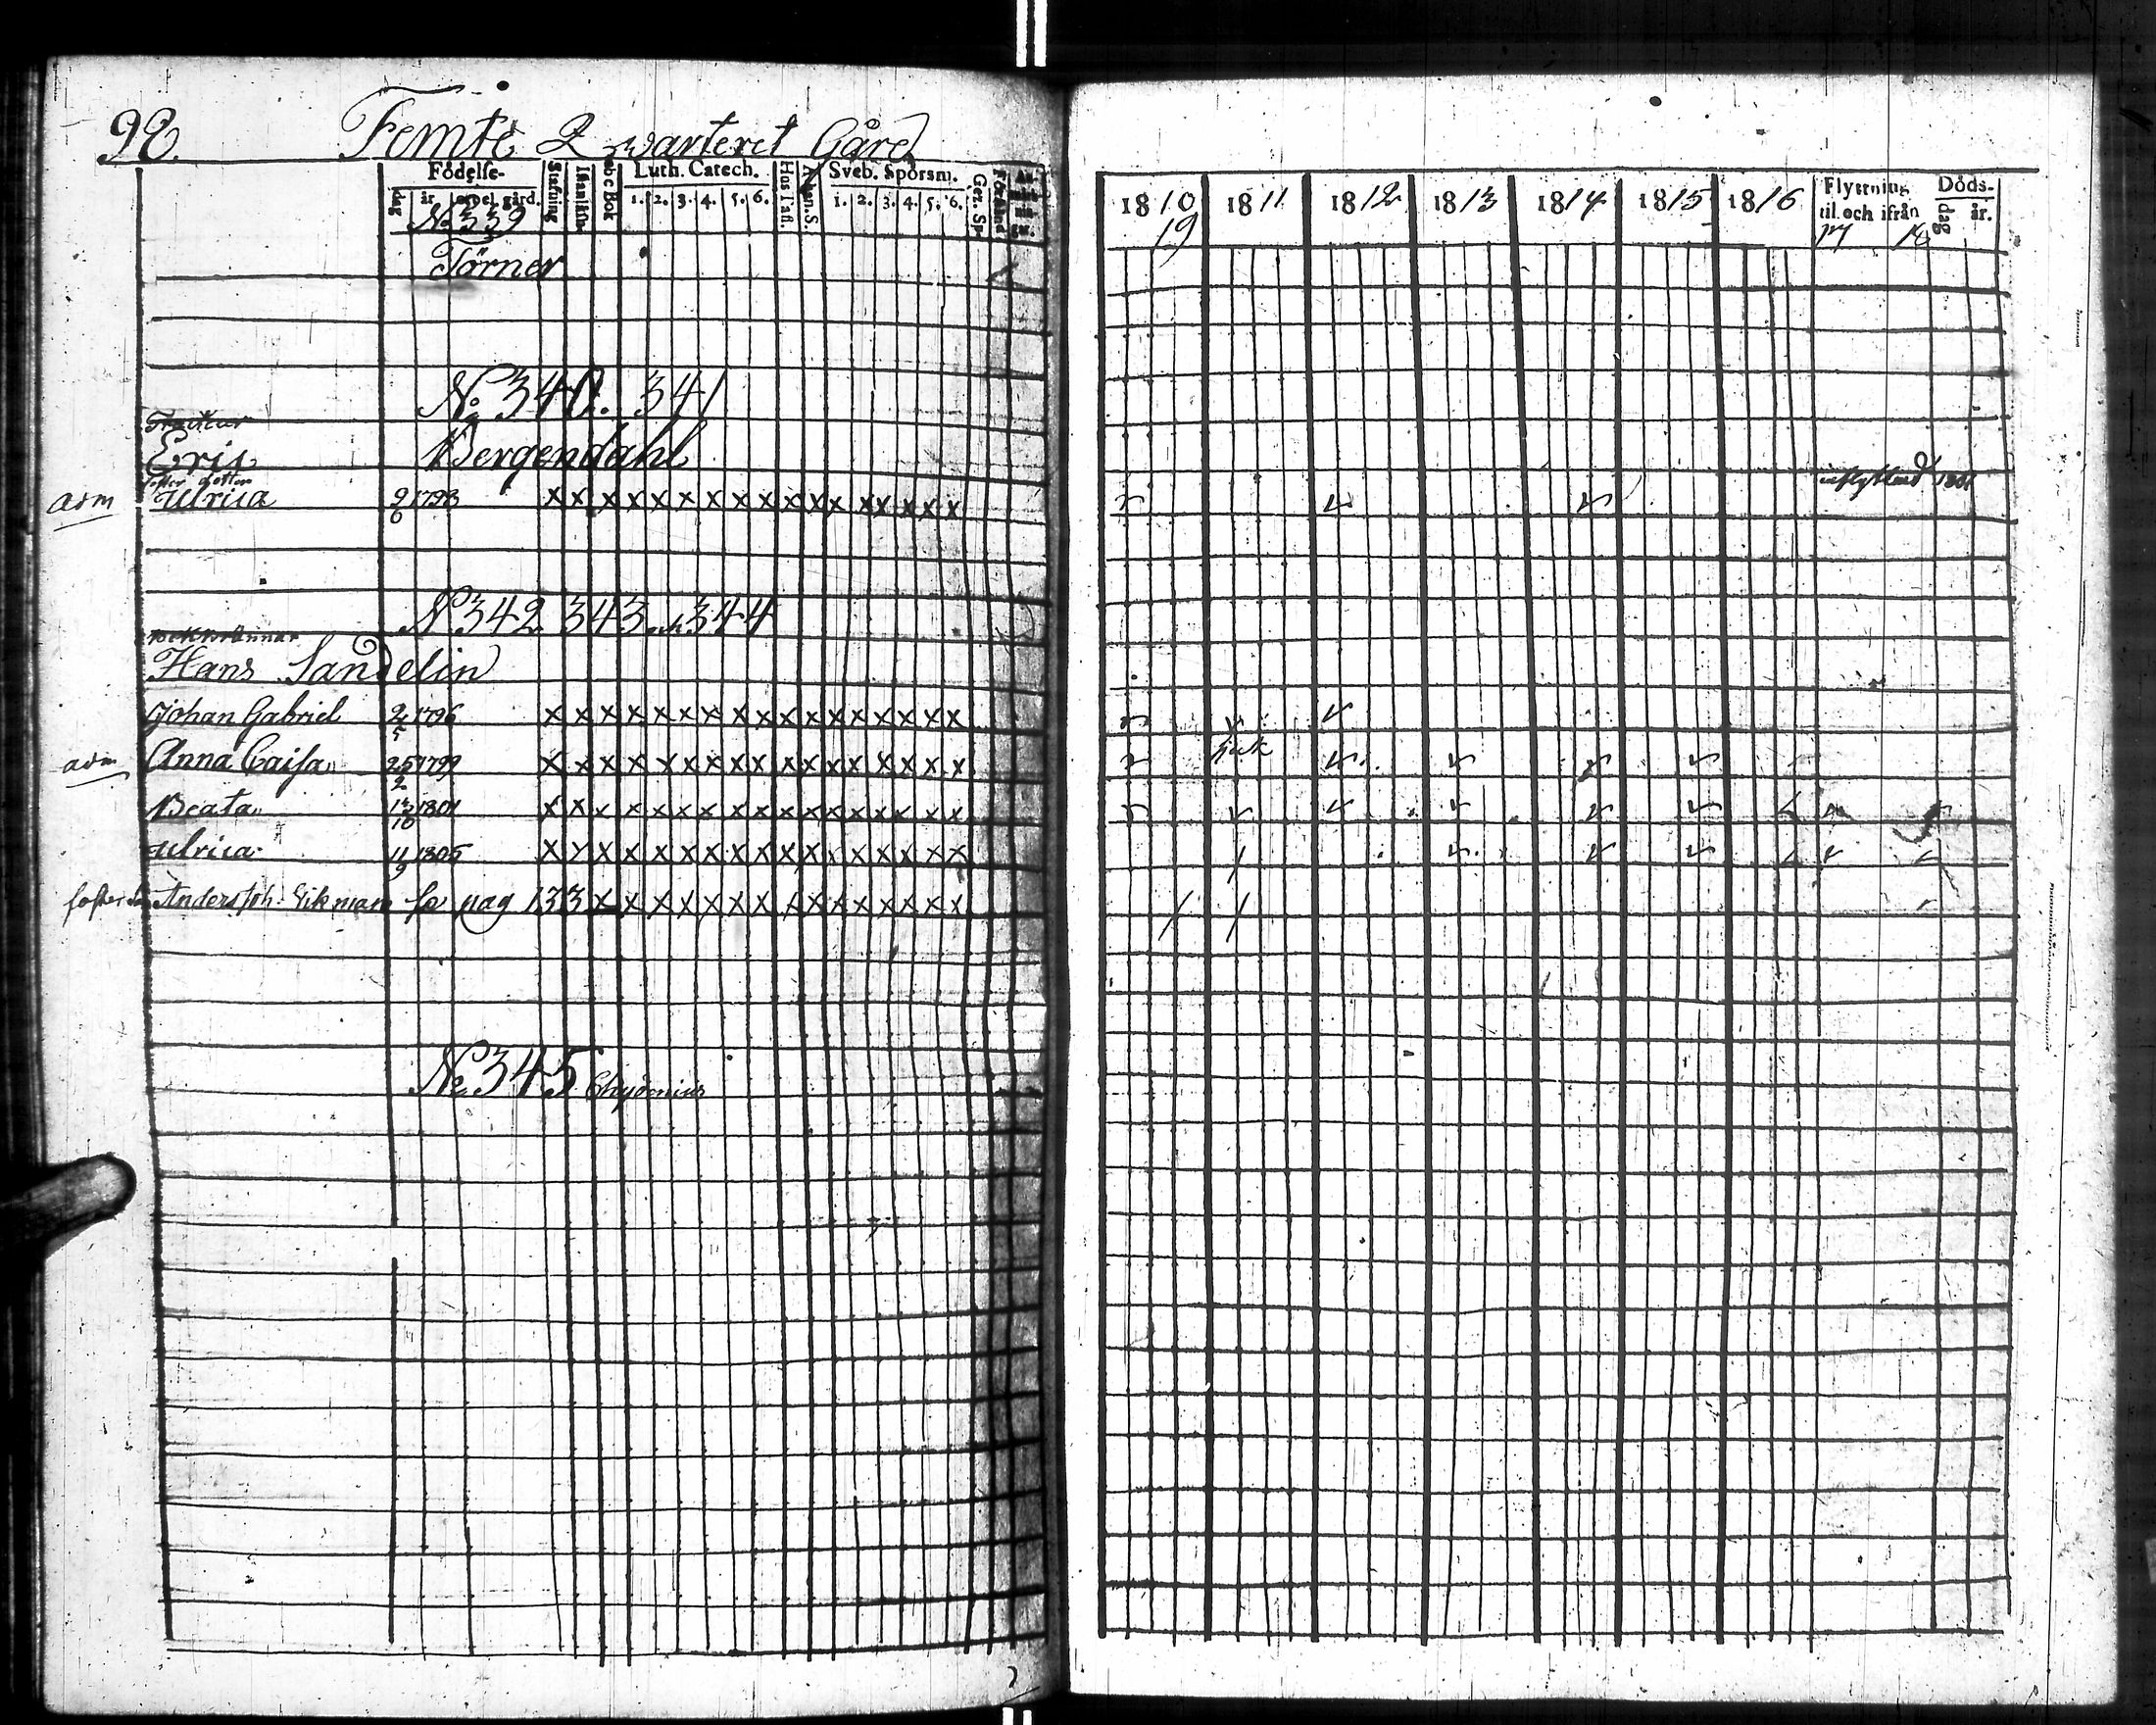 98.
Femte Qwarteret Gård
Födelse-
dag
år
sopel. gård.
Stafning
Innanläsn.
abc Bok
Luth. Catech.
1. 2. 3. 4. 5. 6.
Hus Tafl.
Athan. S.
Sveb. Spörsm.
1. 2. 3. 4. 5. 6.
Gez. Sp.
Förstånd
An-
märk-
nin-
gar.
No 339
Törner
No 340. 341
Eric Bergendahl
adm
foster dotter
Ulrica 9/6 1793 x x x x x x x x x x x x x x x x x
No 342 343 och 344
Hans Sandelin
Johan Gabriel 1796 x x x x x x x x x x x x x x x x x
adm Anna Caisa 25/2 1799 x x x x x x x x x x x x x x x x x
Beata 13/10 1801 x x x x x x x x x x x x x x x x x
Ulrica 11/9 1805 x x x x x x x x x x x x x x x x x
foster Son Anders Joh. Eikman se pag 133 x x x x x x x x x x x x x x
No 345
1810 1811 1812 1813 1814 1815 1816
Flyttning
til och ifrån
Döds-
dag
år.
19
17 18
sjuk